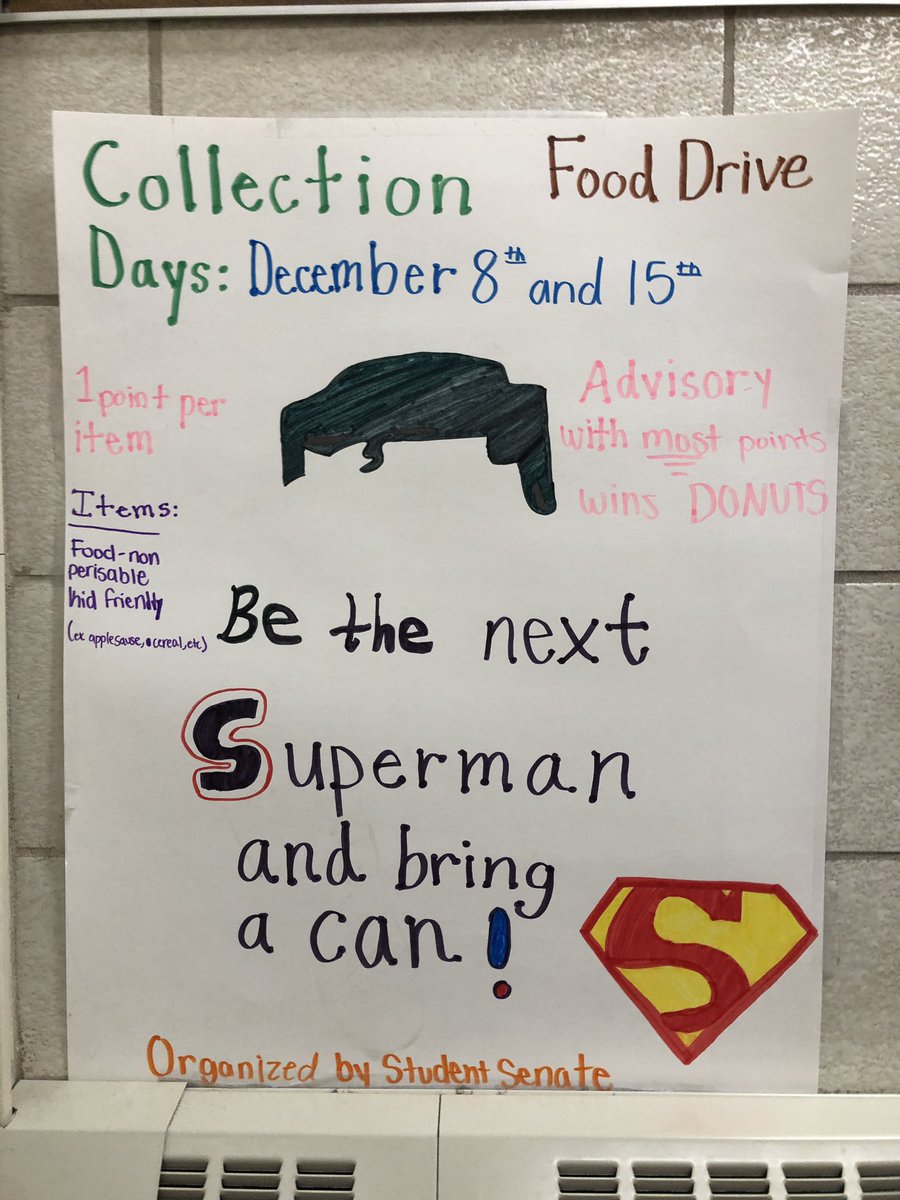 Collection
Food Drive
Days: December 8th and 15th
1 point per
item
Advisory
with most points
wins DONUTS
Items:
Food-non
perisable
kid friendly
(ex applesause, cereal, etc)
Be the next
Superman
and bring
a can!
S
Organized by Student Senate